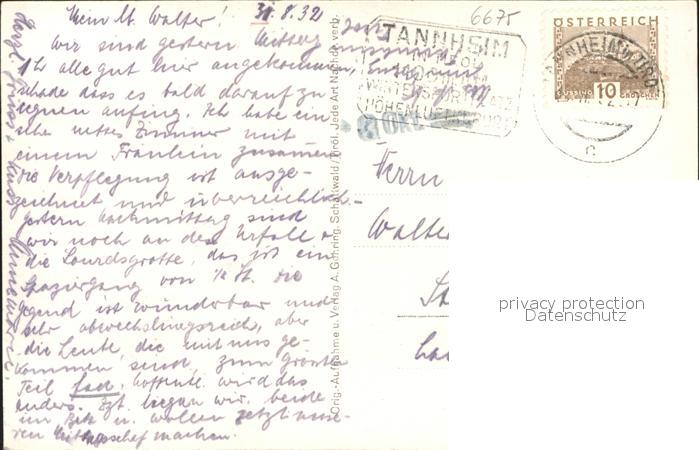 Mein lb. Walter! 31.8.32
Wir sind gestern Mittag
1 Uhr alle gut hier angekommen,
schade dass es bald darauf zu
regnen anfing. Ich habe ein
sehr nettes Zimmer mit
einem Fräulein zusammen
die Verpflegung ist ausge-
zeichnet und überreichlich.
gestern Nachmittag sind
wir noch an den
die Lourdsgrotte, das ist ein
Spaziergang von ½ St. die
Gegend ist wunderbar und
sehr abwechslungsreich, aber
die Leute, die mit uns ge-
kommen sind, zum grössten
Teil fad, hoffentl. wird das
anders. Zzt. liegen wir beide
im Bett u. wollen jetzt unse-
ren Mittagsschlaf machen.
Herzl. Gruss u. Kuss
Orig.-Aufnahme u. Verlag A. Gohring, Schattwald/Tirol. Jede Art Nachdr. verb.
6675
TANNHEIM
TIROL
WINTERSPORTPLATZ
HÖHENLUFTKURORT
ÖSTERREICH
GÜSSING
10
GROSCHEN
TANNHEIM TIROL
c
Herrn
Walter
privacy protection
Datenschutz